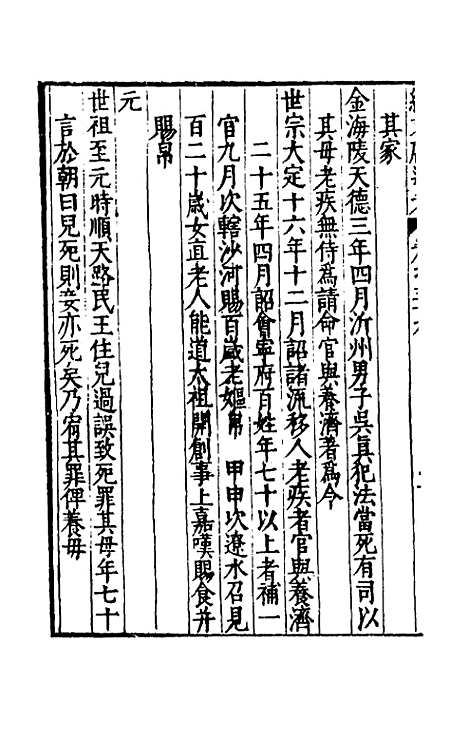 其家
金海陵天德三年四月沂州男子吳眞犯法當死有司以
其母老疾無侍爲請命官與養濟著爲令
世宗大定十六年十二月詔諸流移人老疾者官與養濟
二十五年四月詔會寧府百姓年七十以上者補一
官九月次轄沙河賜百歲老嫗帛　甲申次遼水召見
百二十歲女直老人能道太祖開創事上嘉嘆賜食并
賜帛
元
世祖至元時順天路民王住兒過誤致死罪其母年七十
言於朝曰兒死則妾亦死矣乃宥其罪俾養母